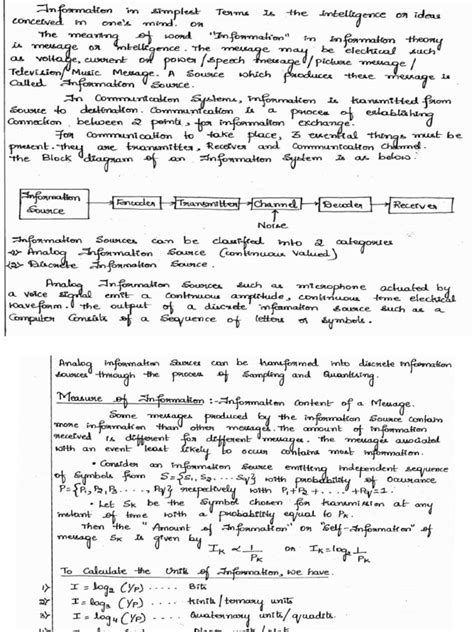 Information in simplest Terms is the intelligence or ideas
conceived in one's mind. or
The meaning of word "Information" in Information theory
is message or intelligence. The message may be electrical such
as voltage, current or power/speech message/picture message/
Television/Music Message. A Source which produces these message is
Called Information Source.
In Communication Systems, information is transmitted from
Source to destination. Communication is a process of establishing
Connection between 2 points, for information exchange.
For Communication to take place, 3 essential things must be
present. They are transmitter, Receiver and Communication Channel.
The Block diagram of an Information System is as below:
Information Source → Encoder → Transmitter → Channel → Decoder → Receiver
Noise
Information Sources can be classified into 2 categories
1) Analog Information Source (Continuous Valued)
2) Discrete Information Source.
Analog Information Sources such as microphone actuated by
a voice signal emit a continuous amplitude, continuous time electrical
waveform. The output of a discrete information source such as a
Computer Consists of a Sequence of letters or Symbols.
Analog information Sources can be transformed into discrete information
sources through the process of Sampling and Quantising.
Measure of Information :- Information Content of a Message.
Some messages produced by the information Source contain
more information than other messages. The amount of information
received is different for different messages. The messages associated
with an event least likely to occur contains most information.
• Consider an information Source emitting independent sequence
of Symbols from S={S₁, S₂.... Sq} with probability of Occurance
P={P₁, P₂, P₃.... Pq} respectively with P₁+P₂+....+Pq=1.
• Let Sk be the Symbol chosen for transmission at any
instant of time with a probability equal to Pk.
Then the "Amount of Information" or "Self-Information" of
message Sk is given by Ik ∝ 1/Pk or Ik=log 1/Pk
To Calculate the Units of Information, we have.
1) I = log₂ (1/P) ..... Bits
2) I = log₃ (1/P) ..... trinits/ternary units
3) I = log₄ (1/P) ..... Quaternary units/quadits.